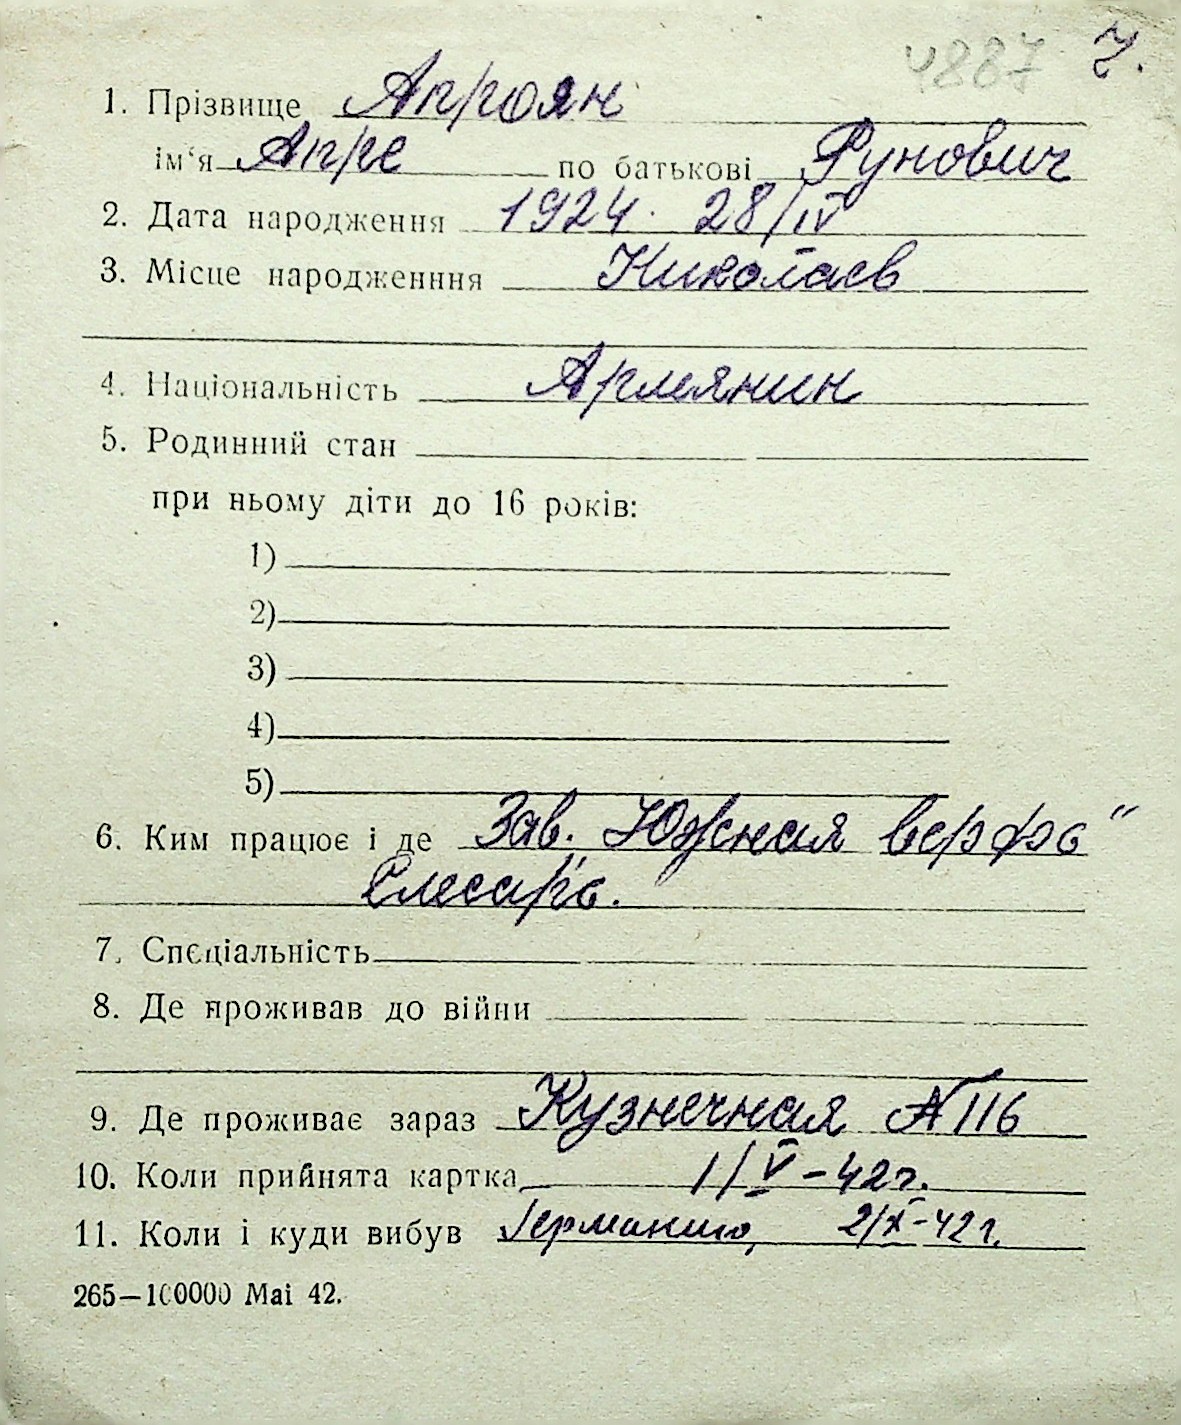 4887 7.
1. Прізвище Апроян
ім‘я Апре по батькові Рунович
2. Дата народження 1924. 28/IV
3. Місце народженння Николаев
4. Національність Армянин
5. Родинний стан
при ньому діти до 16 років:
1)
2)
3)
4)
5)
6. Ким працює і де Зав. „Южная верфь“
Слесарь.
7. Спєціальність
8. Де проживав до війни
9. Де проживає зараз Кузнечная № 116
10. Коли прийнята картка 1/V-42г.
11. Коли і куди вибув Германию, 2/X-42г.
265—100000 Маі 42.